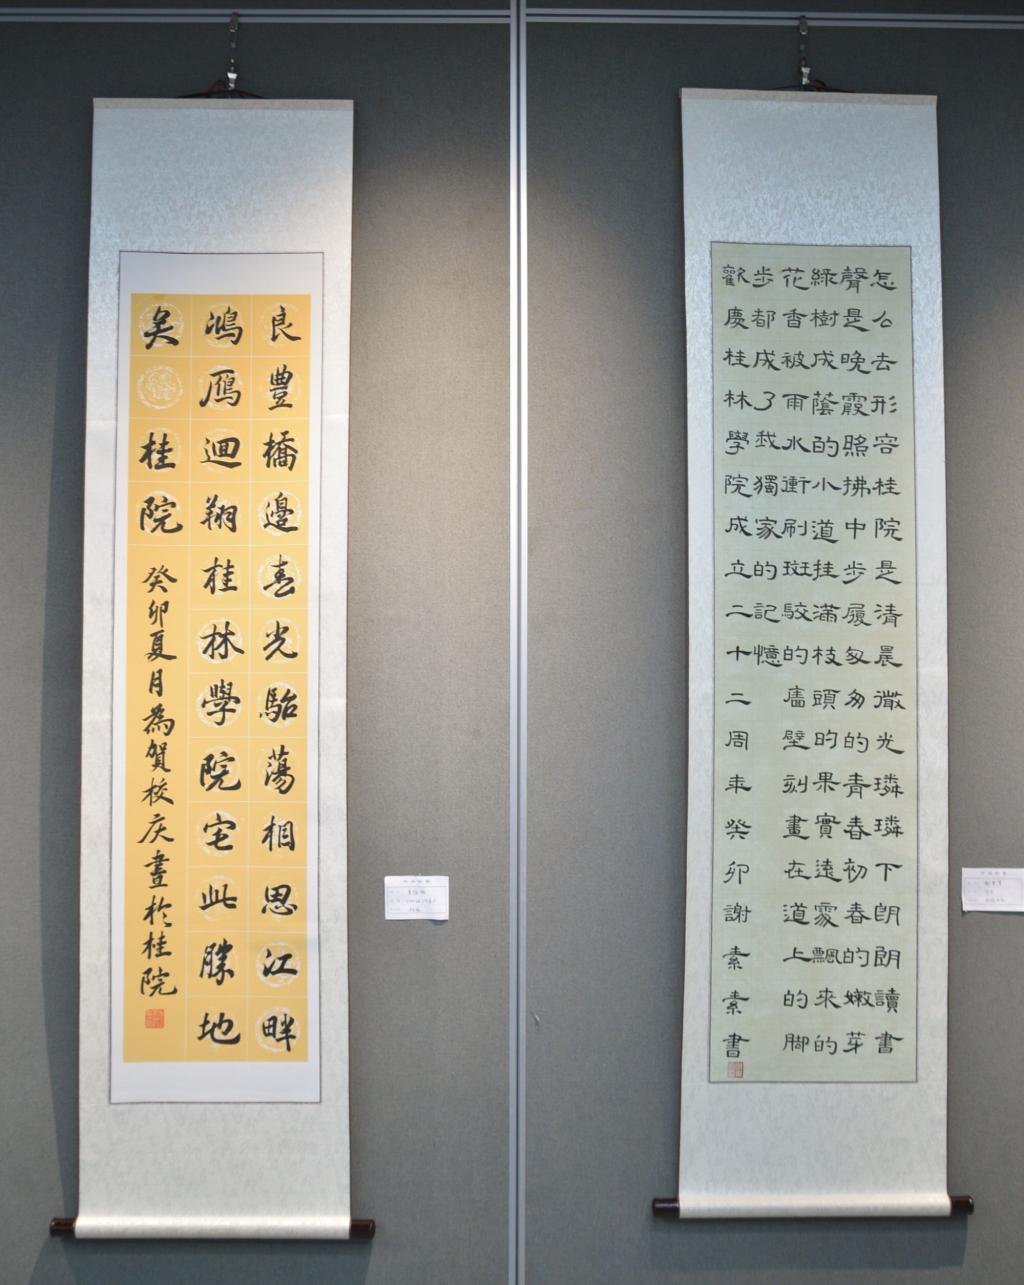 良豐橋邊春光駘蕩相思江畔
鴻鴈迴翔桂林學院宅此勝地
桂院
癸卯夏月為賀校庆書於桂院
怎么去形容桂院是清晨微光璘璘下朗朗讀書
聲是晚霞照拂中步履匆匆的青春初春的嫩芽
緑樹成蔭的小道挂滿枝頭的果實遠處飄來的
花香被雨水衝刷斑駮的墻壁刻畫在道上的脚
步都成了我獨家的記憶
歡慶桂林學院成立二十二周年癸卯謝素素書